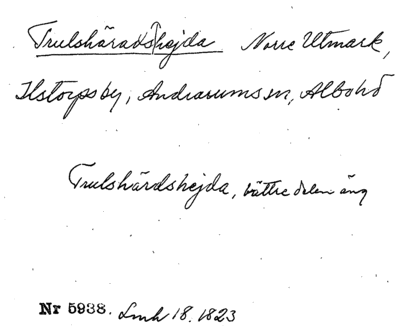 Trulsháradshejda Norre Utmark,
Ilstorpsby, Andrarums sn, Albohd
Trulshärdshejda, bättre delen äng
Nr 5938. Lmh 18. 1823